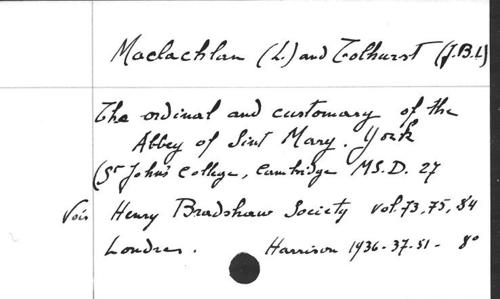 Maclachlan (L.) and Tolhurst (J.B.L)
The ordinal and customary of the
Abbey of Sint Mary. York
(St John's College, Cambridge MS. D. 27
Voir Henry Bradshaw Society vol. 73, 75, 84
Londres. Harrison 1936-37-51- 8°